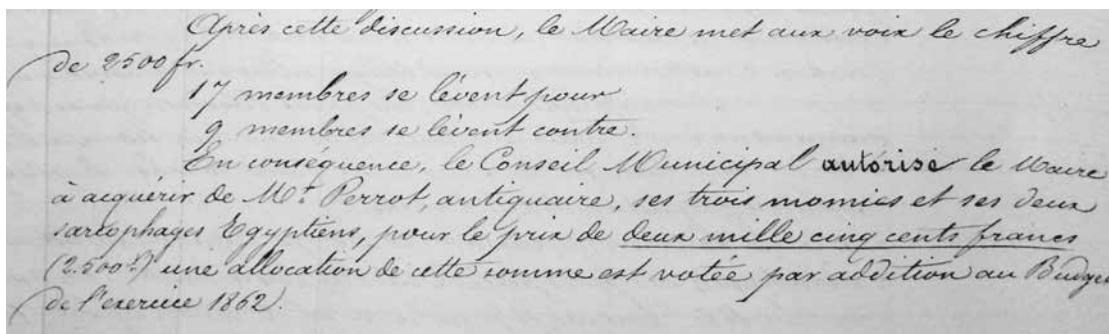 Après cette discussion, le Maire met aux voix le chiffre
de 2500 fr.
17 membres se lèvent pour
9 membres se lèvent contre.
En conséquence, le Conseil Municipal autorise le Maire
à acquérir de Mr. Perrot, antiquaire, ses trois momies et ses deux
sarcophages Egyptiens, pour le prix de deux mille cinq cents francs
(2.500f) une allocation de cette somme est votée par addition au Budget
de l'exercice 1862.